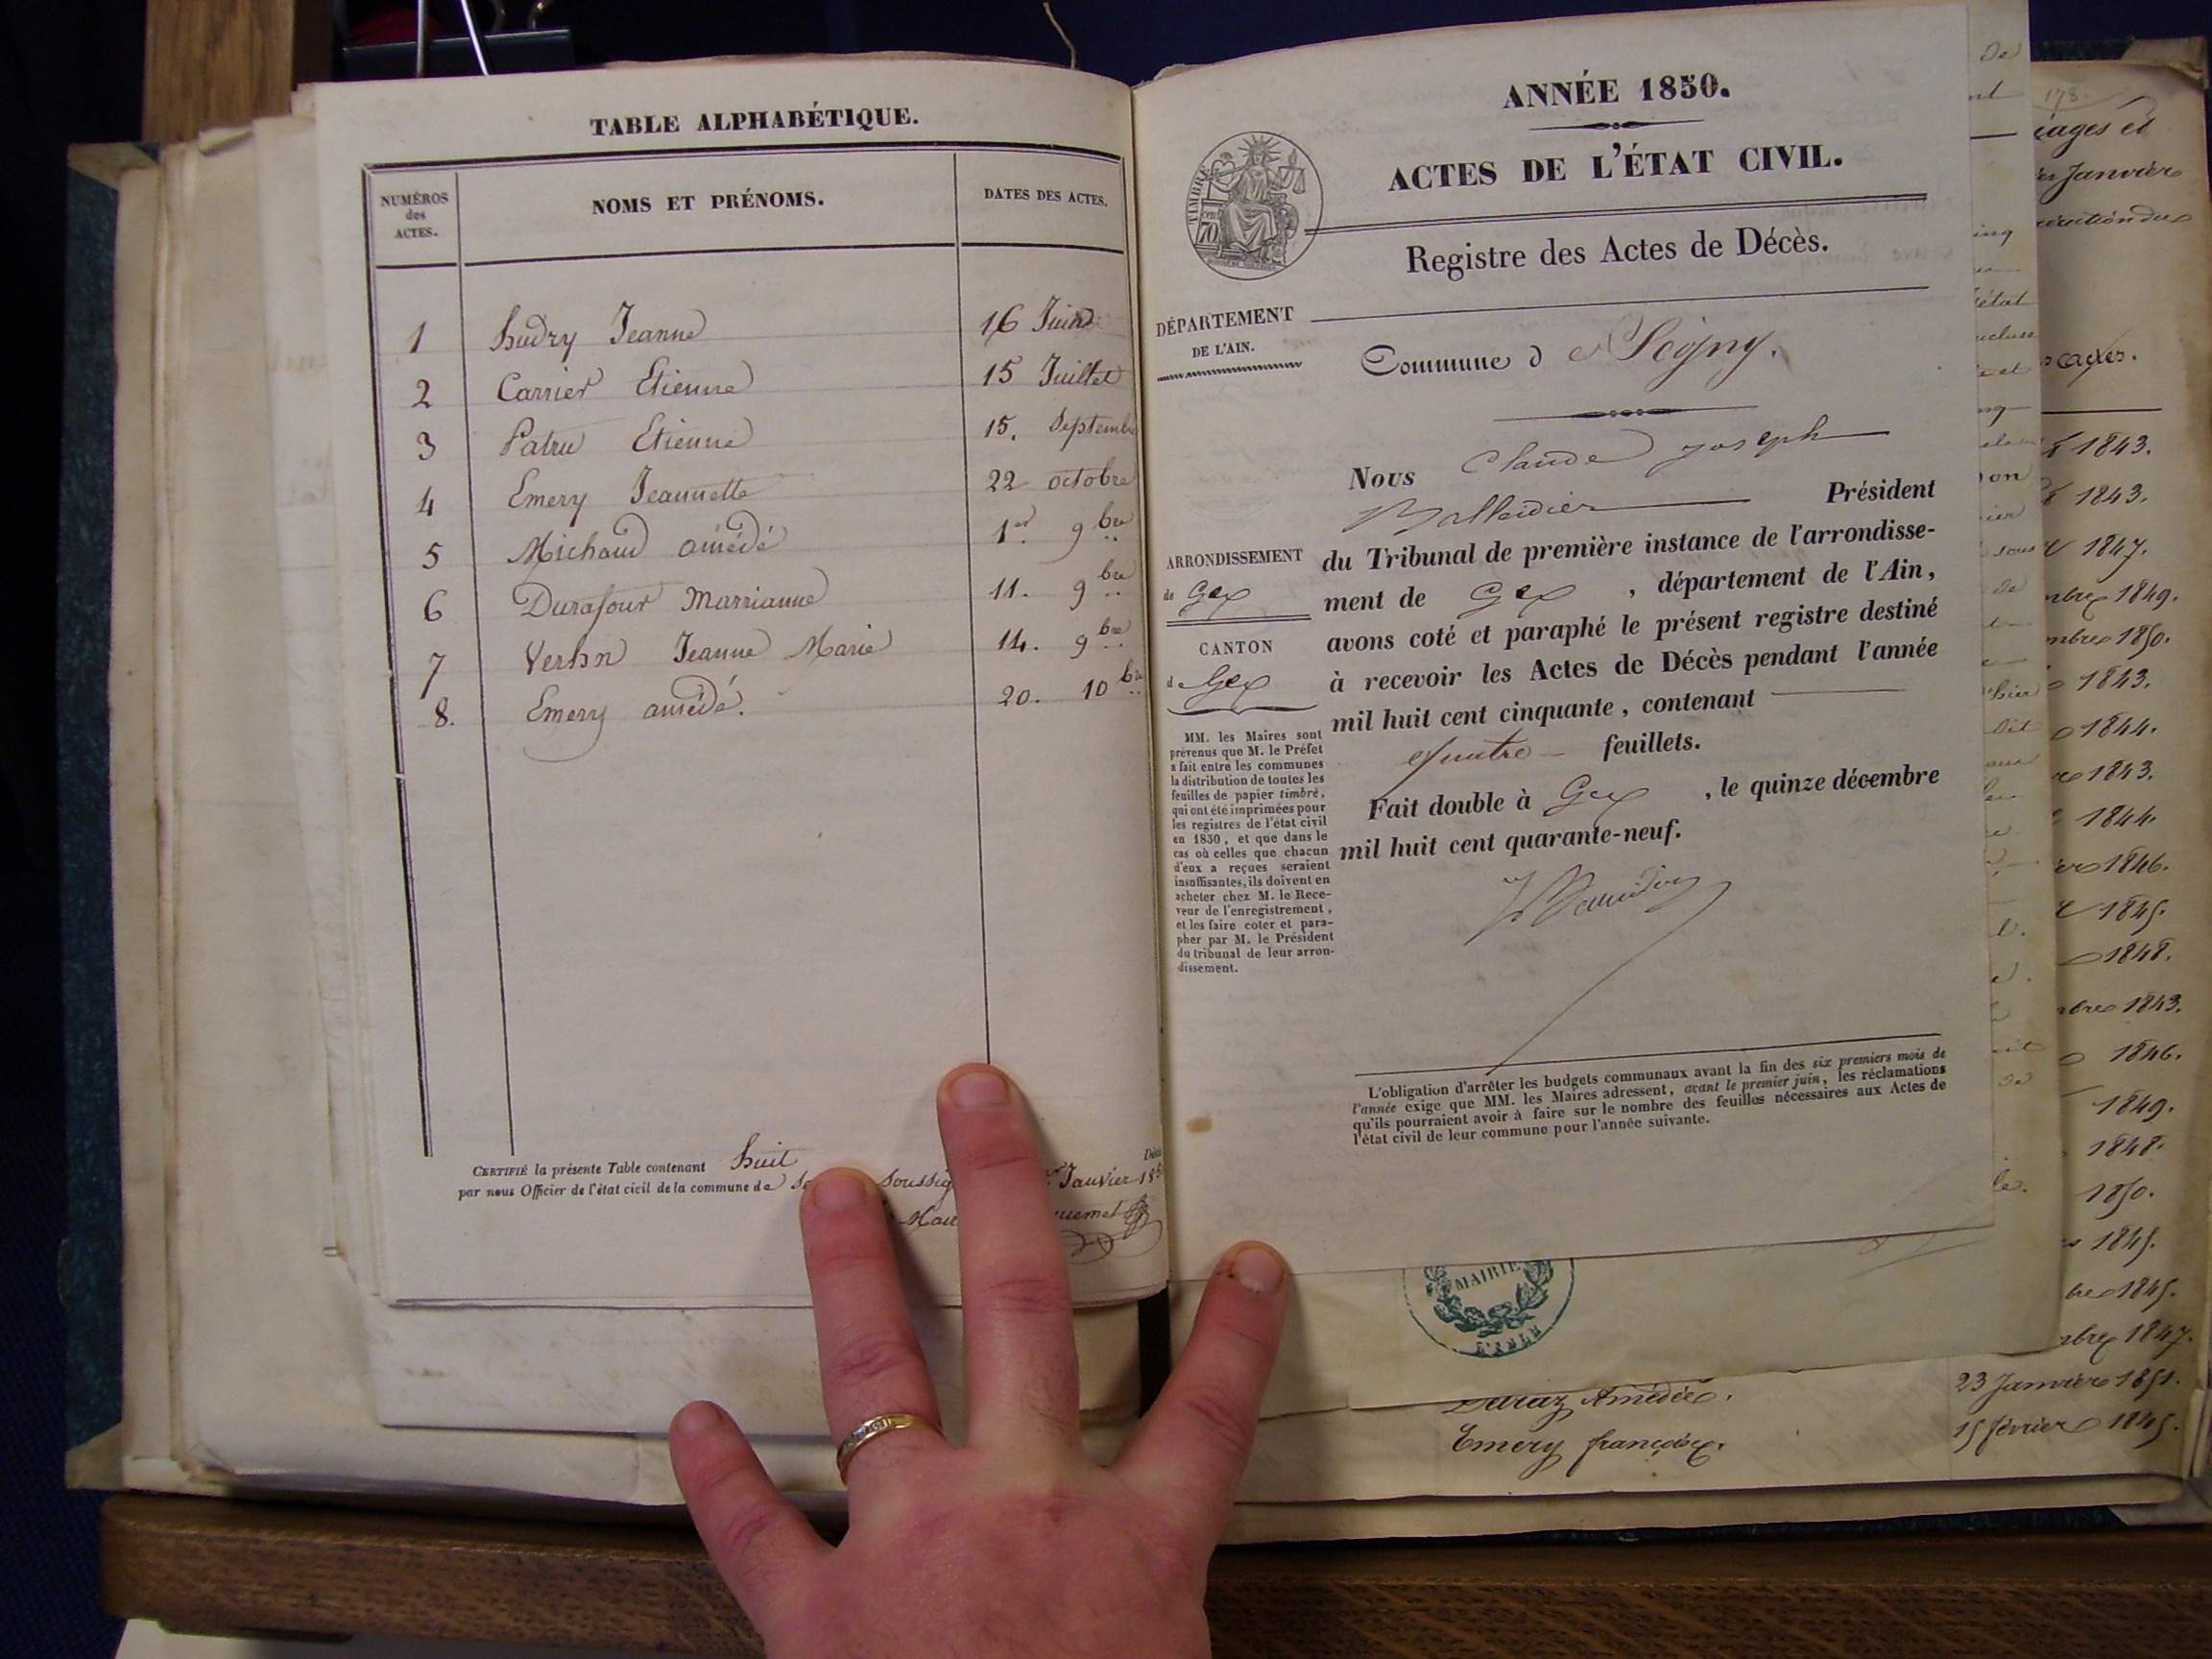 TABLE ALPHABÉTIQUE.
NUMÉROS des ACTES.
NOMS ET PRÉNOMS.
DATES DES ACTES.
1 Hudry Jeanne 16 Juin
2 Carrier Etienne 15 Juillet
3 Patru Etienne 15. Septembre
4 Emery Jeannette 22 octobre
5 Michaud amédé 1er. 9bre
6 Durafour Marrianne 11. 9bre
7 Jeanne Marie 14. 9bre
8. Emery amédé. 20. 10bre
CERTIFIÉ la présente Table contenant huit
par nous Officier de l'état civil de la commune de Janvier
ANNÉE 1850.
ACTES DE L'ÉTAT CIVIL.
TIMBRE
70
Registre des Actes de Décès.
DÉPARTEMENT
DE L'AIN.
Commune d
Nous Claude Joseph
Président
du Tribunal de première instance de l'arrondisse-
ment de Gex , département de l'Ain,
avons coté et paraphé le présent registre destiné
à recevoir les Actes de Décès pendant l'année
mil huit cent cinquante, contenant
quatre feuillets.
Fait double à Gex , le quinze décembre
mil huit cent quarante-neuf.
ARRONDISSEMENT
de Gex
CANTON
d Gex
MM. les Maires sont
prévenus que M. le Préfet
a fait entre les communes
la distribution de toutes les
feuilles de papier timbré,
qui ont été imprimées pour
les registres de l'état civil
en 1850, et que dans le
cas où celles que chacun
d'eux a reçues seraient
insuffisantes, ils doivent en
acheter chez M. le Rece-
veur de l'enregistrement,
et les faire coter et para-
pher par M. le Président
du tribunal de leur arron-
dissement.
L'obligation d'arrêter les budgets communaux avant la fin des six premiers mois de
l'année exige que MM. les Maires adressent, avant le premier juin, les réclamations
qu'ils pourraient avoir à faire sur le nombre des feuilles nécessaires aux Actes de
l'état civil de leur commune pour l'année suivante.
MAIRIE
178.
Janvier
1843.
1843.
1847.
1849.
1850.
1843.
1844.
1843.
1844.
1846.
1845.
1848.
1843.
1846.
1849.
1848.
1850.
1845.
1845.
1847.
Amédée. 23 Janvier 1851.
Emery françoise. 15 février 1845.